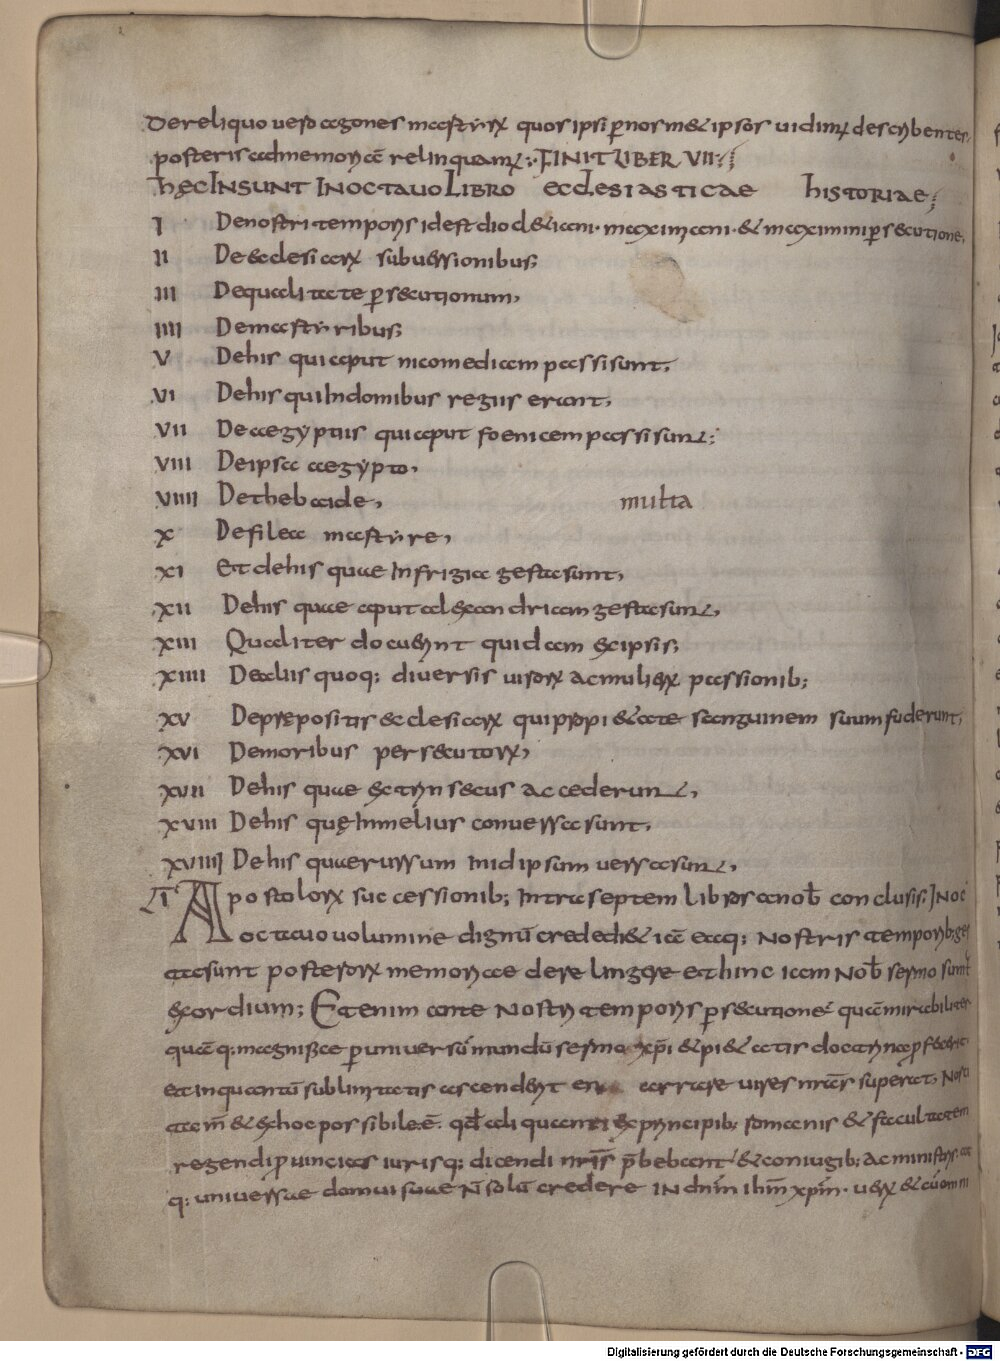 De reliquo vero agones martyrum quos ipsi per nosmet ipsos vidimus describentes
posteris ad memoriā relinquamus. FINIT LIBER VII
hęc INSUNT IN OCTAVO LIBRO ecclesiasticae historiae;
I De nostri temporis id est diocletiani maximiani et maximini persecutione,
II De ecclesiarum subversionibus;
III De qualitate persecutionum,
IIII De martyribus;
V De his qui aput nicomediam passi sunt,
VI De his qui In domibus regiis erant,
VII De aegyptiis qui aput foenicem passi sunt;
VIII De ipsa aegypto,
VIIII De thebaide, multa
X De filea martyre,
XI Et de his quae In frigia gesta sunt,
XII De his quae aput alexandriam gesta sunt,
XIII Qualiter docuerint quidam ex ipsis;
XIIII De aliis quoq; diversis virorum ac mulierum passionib;
XV De prępositis ecclesiarum qui propriete sanguinem suum fuderunt,
XVI De moribus persecutorum,
XVII De his quae extrinsecus accederunt,
XVIII De his quę In melius conversa sunt,
XVIIII De his quae rursum In id ipsum versa sunt,
Apostolorum successionib; Intra septem libros a nob̄ conclusis; In oc
octavo volumine dignū credede eaq; nostris temporib; ges
ta sunt posterorum memoriae derelinqere et hinc iam nob̄ sermo sum̄
exordium; Etenim ante nostri temporis persecutionē quā mirabiliter
quāq; magnifice per universū mundū sermo xp̄i et pietatis doctrina profecerit
et in quantū sublimitatis ascenderit enarrare vires nr̄as superat. Nostā
tam̄ et ex hoc possibile ē. qd̄ aliquanti ex principib; romanis et facultatem
regendi provincias iurisq; dicendi nr̄is p̄bebant et coniugib; ac ministris
q; universae domui suae n̄ solū credere in dnm̄ ihm̄ xpm̄. verum et cū omni